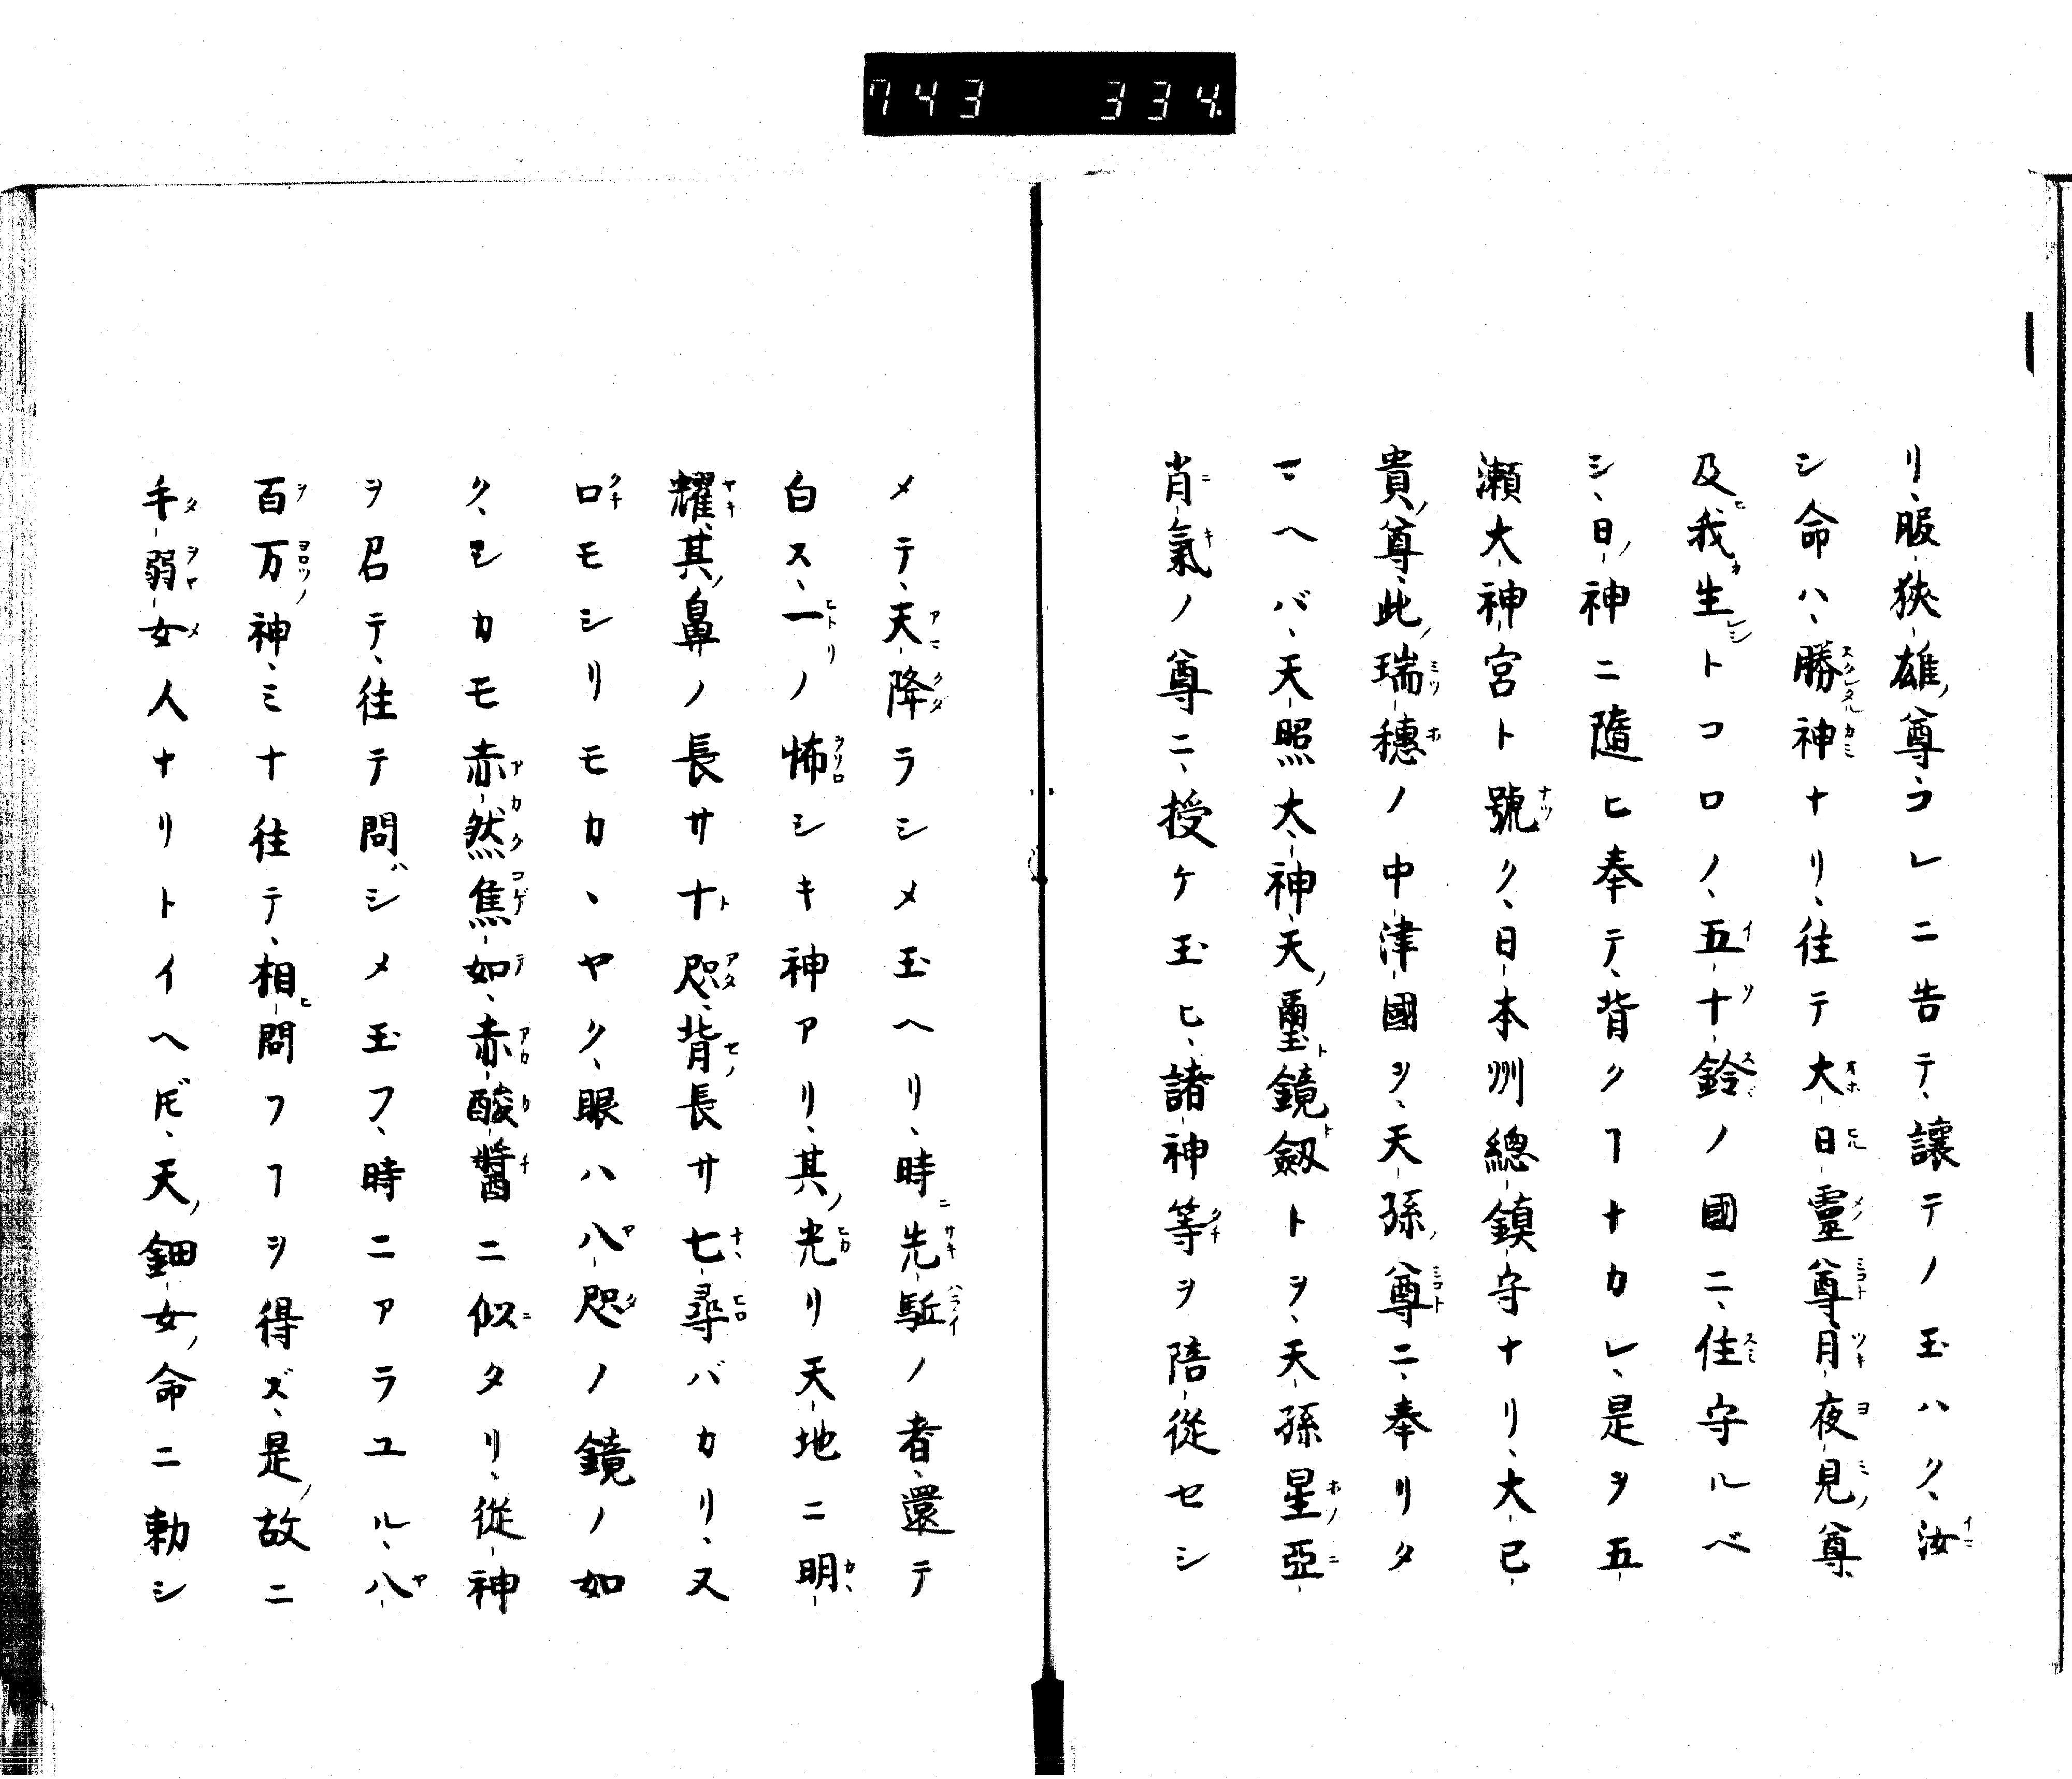 743 334
リ、服狹雄ノ尊、コレニ告テ、讓テノ玉ハク、汝
シ命ハ、勝神ナリ、往テ大日靈尊、月夜見ノ尊、
及ヒ我カ生レシトコロノ、五十鈴ノ國ニ、住守ルベ
シ、日ノ神ニ隨ヒ奉テ、背クヿナカレ、是ヲ五
瀬大神宮ト號ク、日本洲總鎮守ナリ、大已
貴ノ尊、此ノ瑞穗ノ中津國ヲ、天孫ノ尊ニ、奉リタ
マヘバ、天照大神、天ノ璽ト鏡ト劔トヲ、天孫星亞
肖氣ノ尊ニ、授ケ玉ヒ、諸神等ヲ陪從セシ
メテ、天降ラシメ玉ヘリ、時ニ先駈ノ者、還テ
白ス、一リノ怖シキ神アリ、其ノ光リ天地ニ明
耀、其ノ鼻ノ長サ十咫、背ノ長サ七尋バカリ、又
口モシリモカヽヤク、眼ハ八咫ノ鏡ノ如
ク、シカモ赤然焦如、赤酸醬ニ似タリ、從神
ヲ召テ、往テ問ハシメ玉フ、時ニアラユル、八
百万ノ神、ミナ往テ、相ヒ問フヿヲ得ズ、是ノ故ニ
手弱女人ナリトイヘ𪜈、天ノ鈿女ノ命ニ勅シ